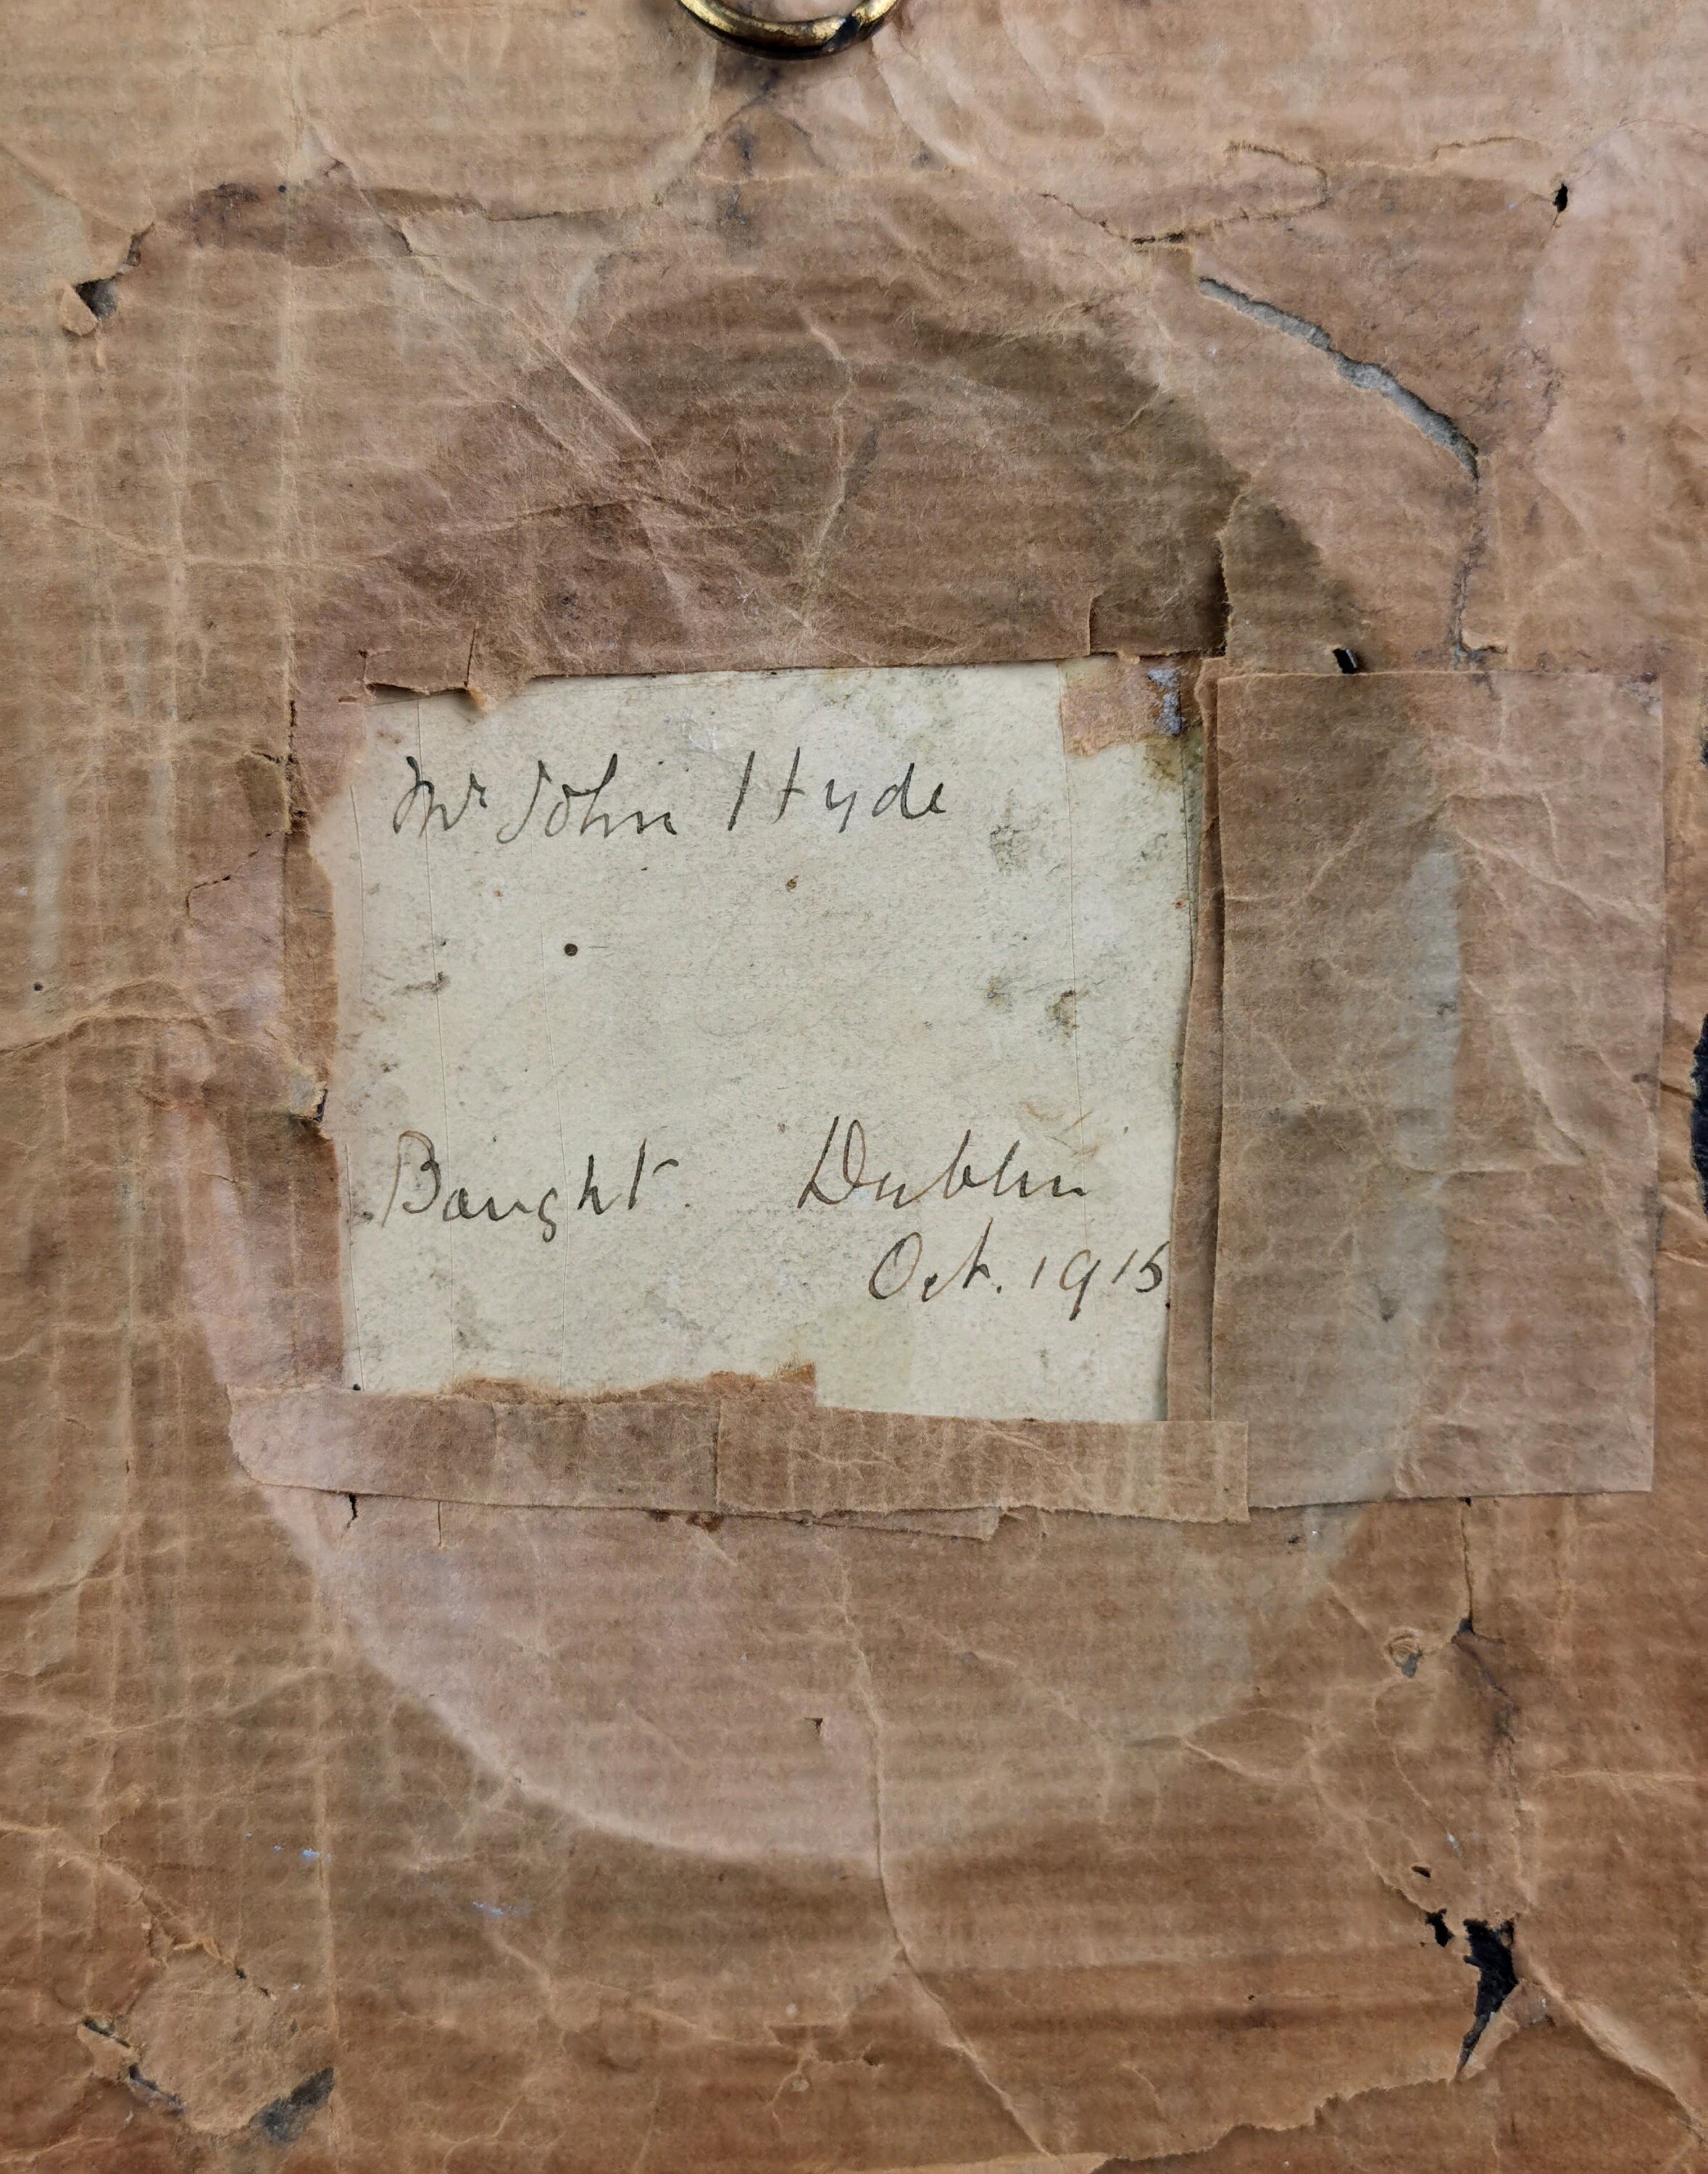 Mr John Hyde
Bought. Dublin
Oct. 1915